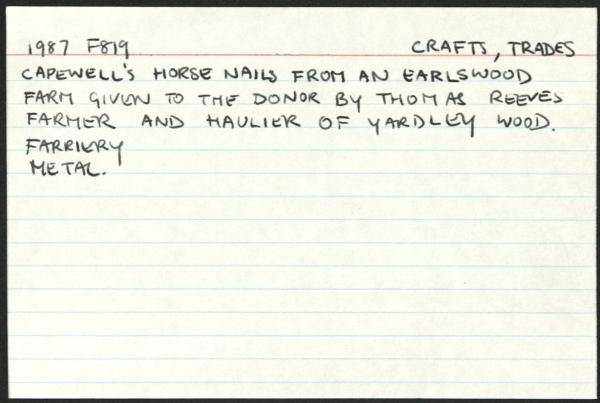 1987 F819 CRAFTS, TRADES
CAPEWELL'S HORSE NAILS FROM AN EARLSWOOD
FARM GIVEN TO THE DONOR BY THOMAS REEVES
FARMER AND HAULIER OF YARDLEY WOOD.
FARRIERY
METAL.